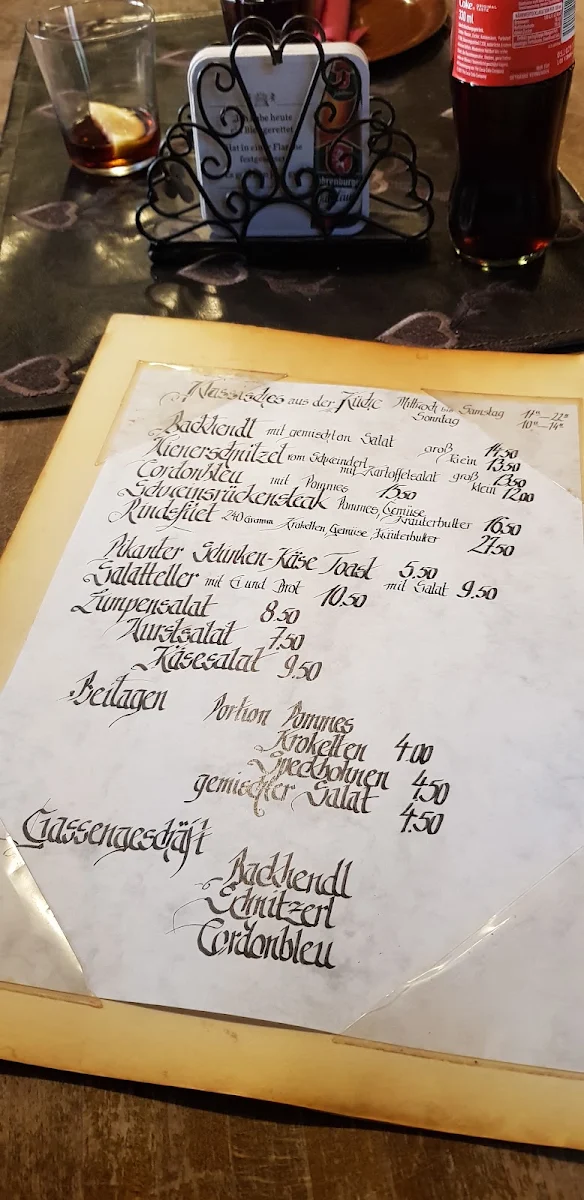 Coke. ORIGINAL TASTE
330 ml
Ich habe heute
ein Bier gerettet
Hat in einer Flasche
festgesessen
Klassisches aus der Küche Mittwoch bis Samstag 11°°–22°°
Sonntag 10°°–14°°
Backhendl mit gemischten Salat groß 14.50
klein 13.50
Wienerschnitzel vom Schweinderl mit Kartoffelsalat groß 13.50
klein 12.00
Cordonbleu mit Pommes 15.50
Schweinsrückensteak Pommes, Gemüse, Kräuterbutter 16.50
Rindsfilet 240 Gramm Kroketten, Gemüse, Kräuterbutter 27.50
Pikanter Schinken-Käse Toast 5.50 mit Salat 9.50
Salatteller mit Ei und Brot 10.50
Lumpensalat 8.50
Wurstsalat 7.50
Käsesalat 9.50
Beilagen Portion Pommes
Kroketten 4.00
Speckbohnen 4.50
gemischter Salat 4.50
Gassengeschäft
Backhendl
Schnitzerl
Cordonbleu